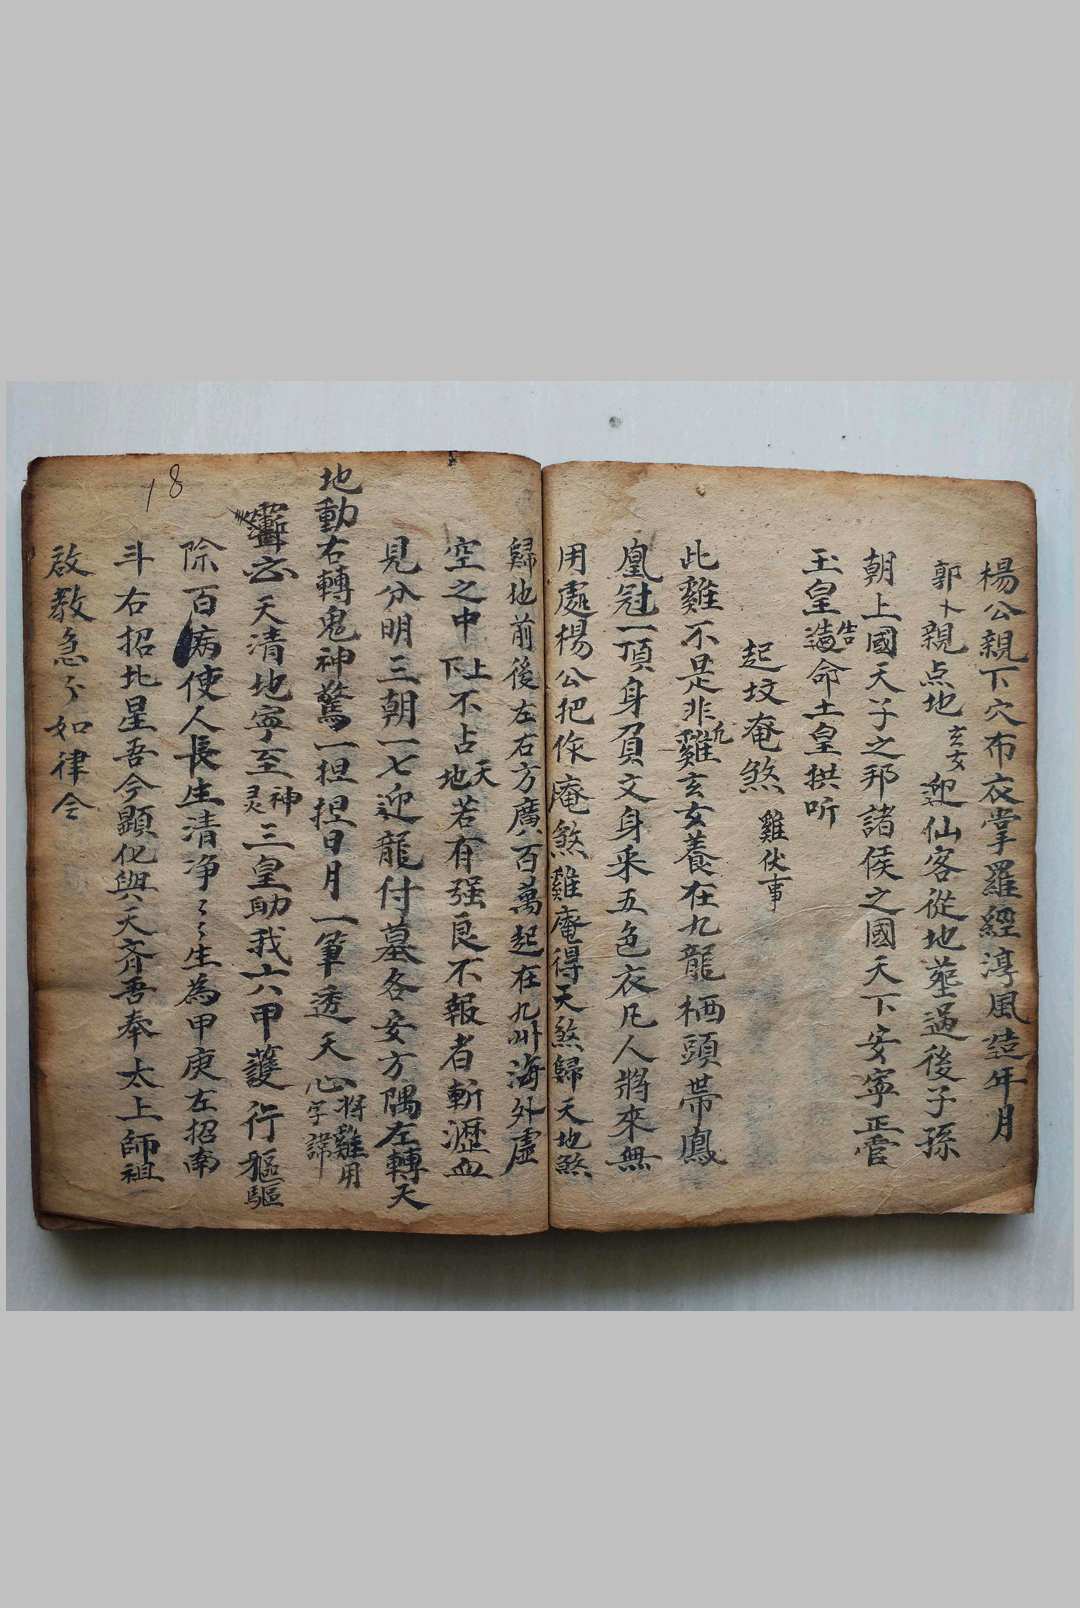 楊公親下穴布衣掌羅經淳風造年月
郭 親点地玄女迎仙客從地塟過後子孫
朝上國天子之邦諸侯之國天下安寜正官
玉皇造告命土皇拱听
起坟庵煞 雞伏事
此雞不是非雞九玄女養在九龍栖頭帶鳳
凰冠一頂身負文身釆五色衣凡人將來無
用處楊公把作庵煞雞庵得天煞歸天地煞
歸地前後左右方廣八百萬起在九州海外虛
空之中上下不占天地若有强良不報者斬瀝血
見分明三朝一七迎龍付墓各安方隅左轉天
地動右轉鬼神驚一担担日月一筆透天心將雞用字諱
天清地寜至神灵三皇助我六甲護行軀驅
除百病使人長生清净〻〻生為甲庚左招南
斗右招北星吾今顯化與天齊吾奉太上師祖
啟教急〻如律令
18